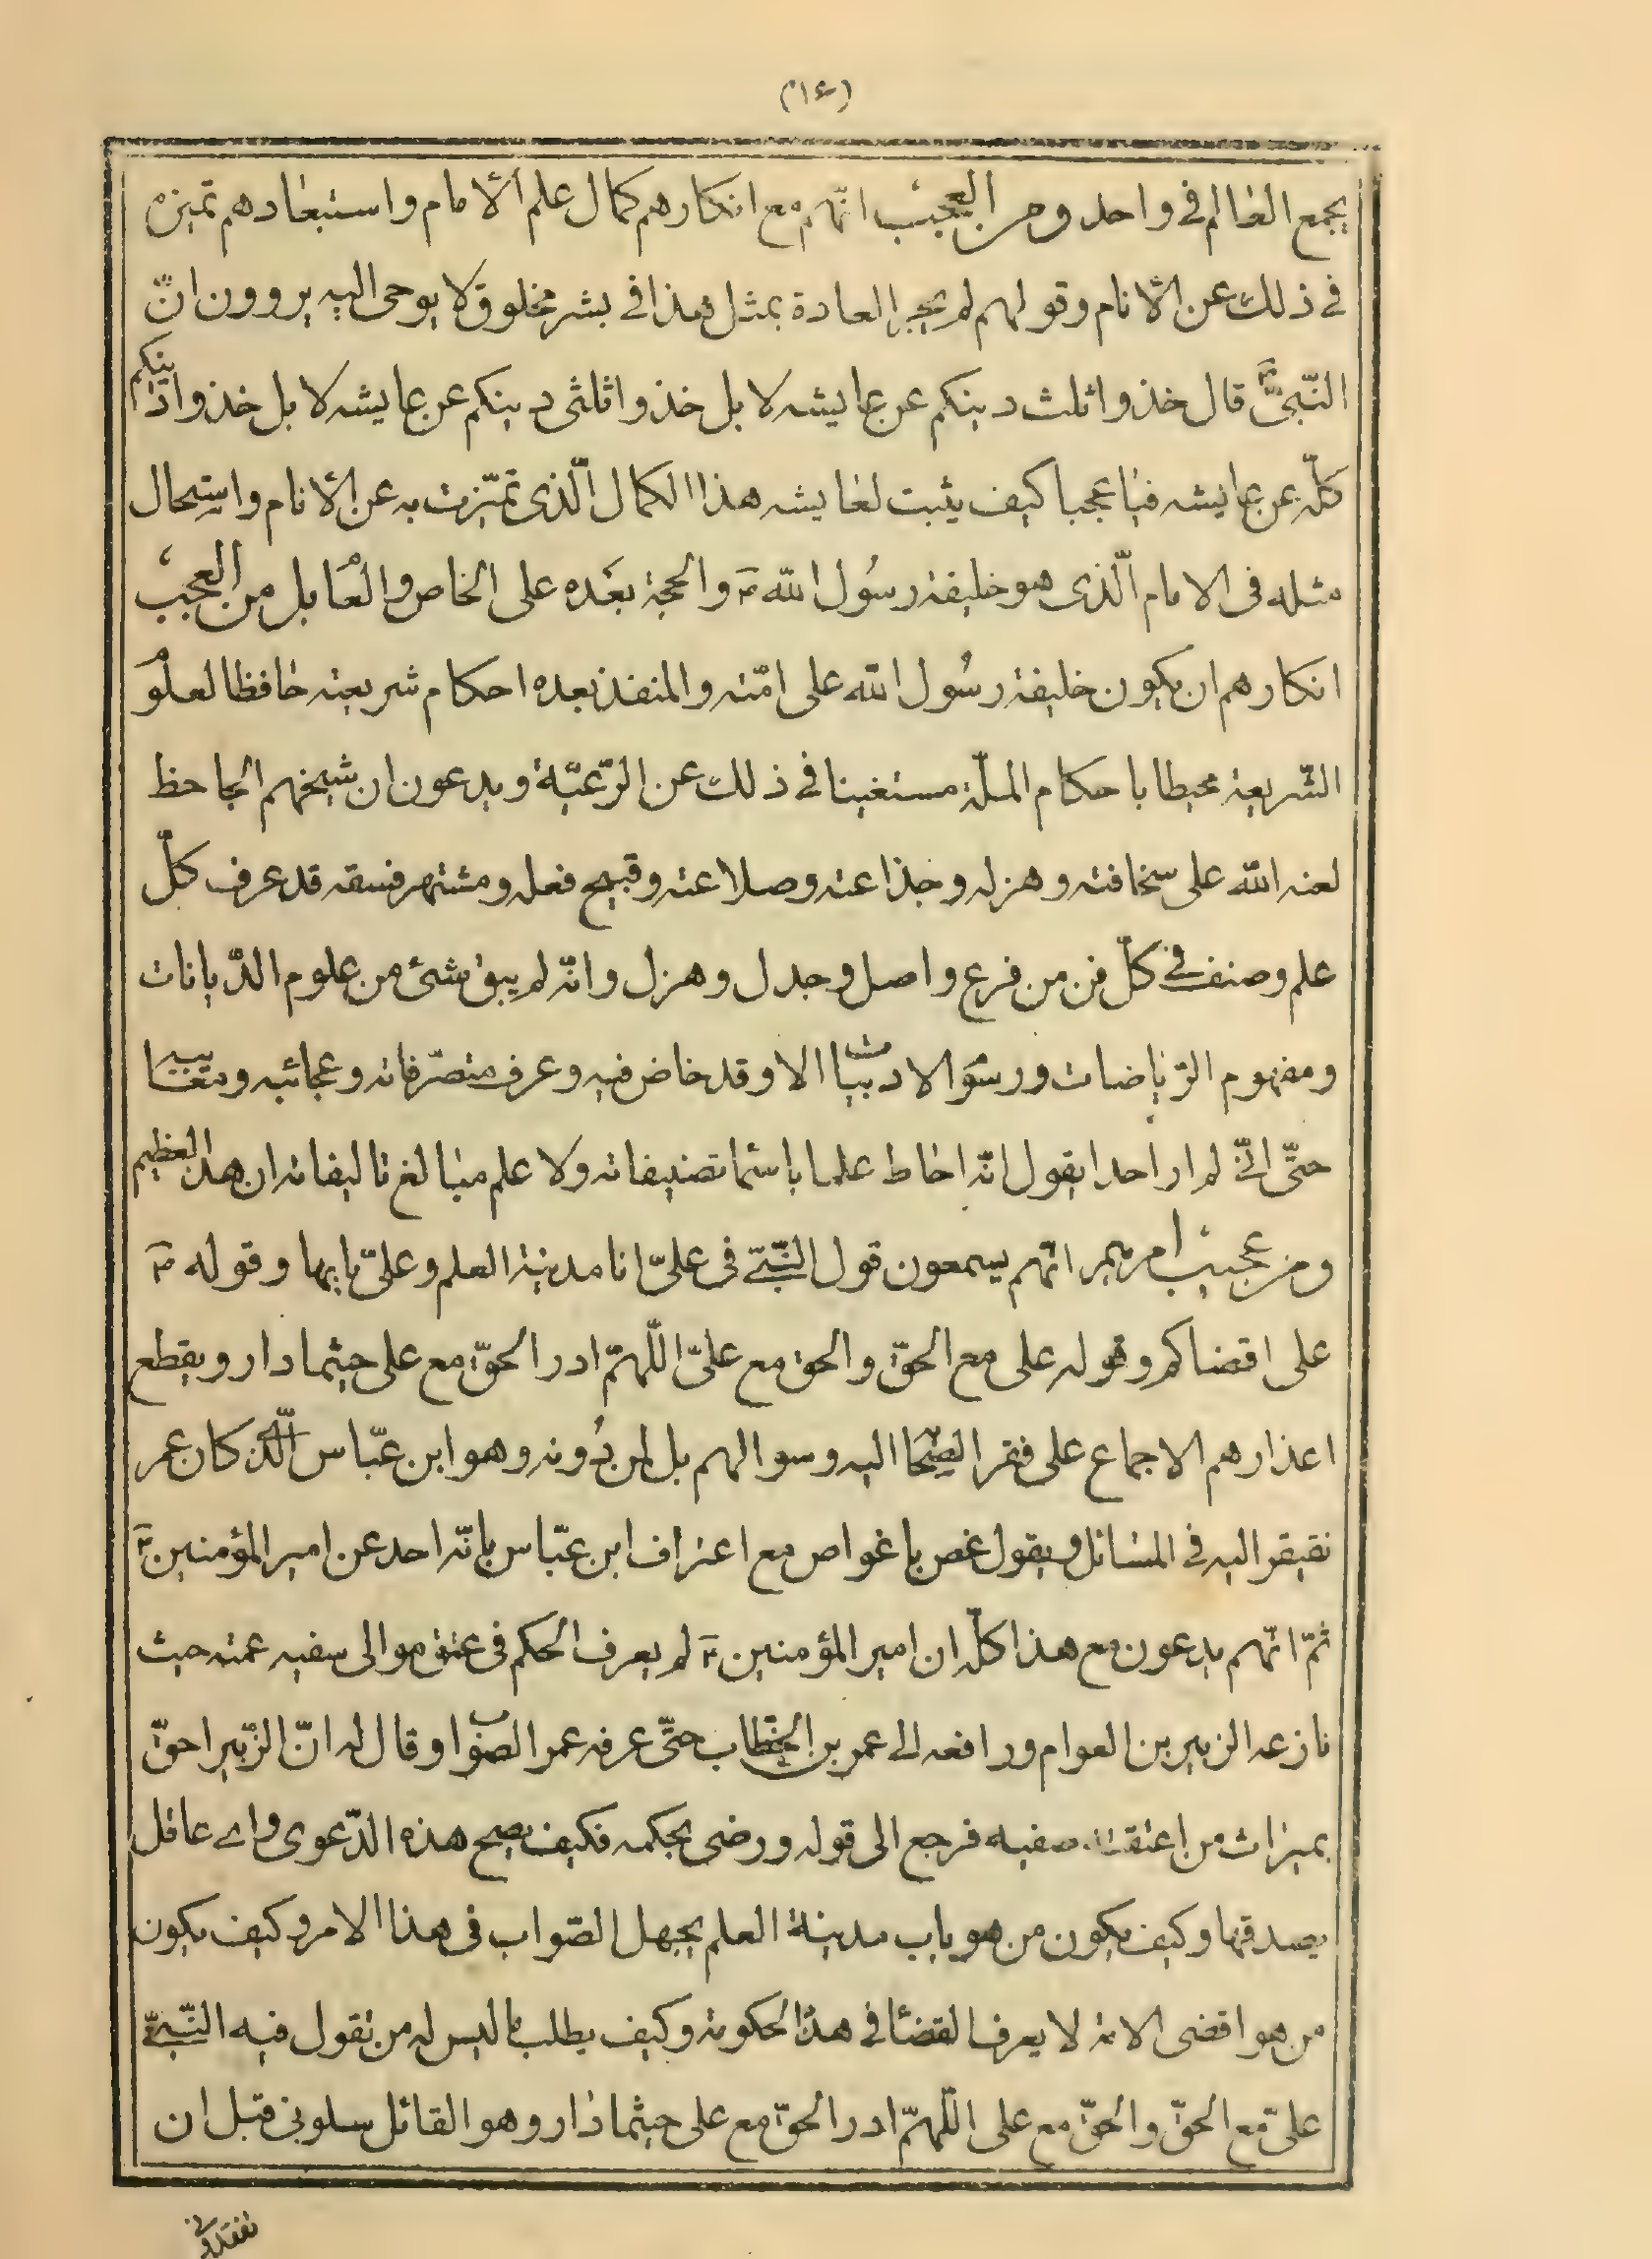 (١٤)
يجمع العالم فى واحد ومن العجيب انّهم مع انكارهم كمال علم الامام واستبعادهم تميزه
فى ذلك عن الانام وقولهم لم يجر العادة بمثل هذا فى بشر مخلوق لا يوحى اليه يروون انّ
النّبىّ ص قال خذوا ثلث دينكم عن عايشه لا بل خذوا ثلثى دينكم عن عايشه لا بل خذوا دينكم
كلّه عن عايشه فيا عجبا كيف يثبت لعايشه هذا الكمال الّذى تميّزت به عن الانام واستحال
مثله فى الامام الّذى هو خليفة رسول الله ص والحجة بعده على الخاص والعام بل من العجب
انكارهم ان يكون خليفة رسول الله على امّته والمنفذ بعده احكام شريعته حافظا لعلوم
الشّريعة محيطا باحكام الملّة مستغنيا فى ذلك عن الرّعيّة ويدعون ان شيخهم الجاحظ
لعنه الله على سخافته وهزله وخذاعته وصلاعته وقبيح فعله ومشتهر فسقه قد عرف كلّ
علم وصنف فى كلّ فن من فرع واصل وجدل وهزل وانّه لم يبق شئ من علوم الدّيانات
ومفهوم الرّياضات ورسوم الادبيات الا وقد خاض فيه وعرف متصرّفاته وعجائبه ومغيبا
حتّى انّى لم ار احدا يقول انّه احاط علما باسما تصنيفاته ولا علم مبالغ تاليفاته ان هذا لعظيم
ومن عجيب امرهم انّهم يسمعون قول النّبىّ فى علىّ انا مدينة العلم وعلىّ بابها وقوله ص
على اقضاكم وقوله على مع الحقّ والحق مع علىّ اللّهمّ ادر الحقّ مع على حيثما دار ويقطع
اعذارهم الاجماع على فقر الصحابة اليه وسوالهم بل لمن دونه وهو ابن عبّاس الّذى كان عمر
نقيقر اليه فى المسائل ويقول غص يا غواص مع اعتراف ابن عبّاس بانّه احد عن امير المؤمنين ع
ثمّ انّهم يدعون مع هذا كلّه ان امير المؤمنين ع لم يعرف الحكم فى عتق موالى سفيه عمته حيث
نازعه الزبير بن العوام ورافعه الى عمر بن الخطاب حتّى عرفه عمر الصواب وقال له انّ الزّبير احقّ
بميراث من اعتقت صفيه فرجع الى قوله ورضى بحكمه فكيف يصح هذه الدّعوى واى عاقل
يصدقها وكيف يكون من هو باب مدينة العلم يجهل الصّواب فى هذا الامر وكيف يكون
من هو اقضى الامة لا يعرف القضا فى هذا الحكومة وكيف يطلب ما ليس له من تقول فيه النّبىّ
علىّ مع الحقّ والحقّ مع على اللّهمّ ادر الحقّ مع على حيثما دار وهو القائل سلونى قبل ان
تفقدونى